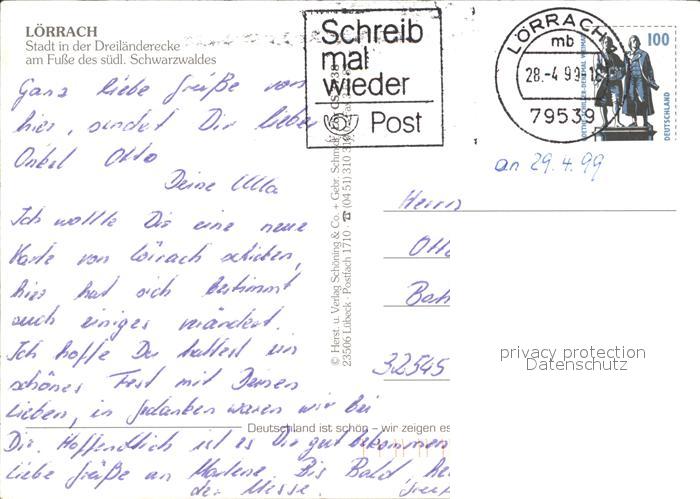 LÖRRACH
Stadt in der Dreiländerecke
am Fuße des südl. Schwarzwaldes
Schreib
mal
wieder
Post
LÖRRACH
mb
28.-4.99-18
79539
100
DEUTSCHLAND
an 29.4.99
Ganz liebe Grüße von
hier, sendet Dir lieber
Onkel Otto
Deine Ulla
Ich wollte Dir eine neue
Karte von Lörrach schicken,
hier hat sich bestimmt
auch einiges verändert.
Ich hoffe Du hattest ein
schönes Fest mit Deinen
Lieben, in Gedanken waren wir bei
Dir. Hoffentlich ist es Dir gut bekommen
Liebe Grüße an Marlene. Bis Bald
der Messe.
© Herst. u. Verlag Schöning & Co. + Gebr. Schmidt
23506 Lübeck · Postfach 1710 · ☎ (04 51) 310 3
Herrn
Otto
Bah
32545
Deutschland ist schön – wir zeigen es
privacy protection
Datenschutz